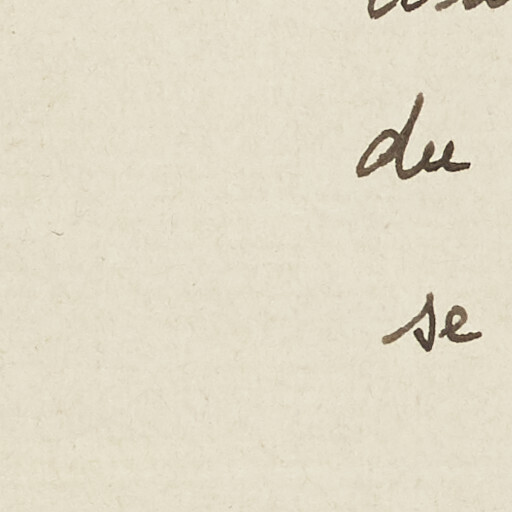 du
se